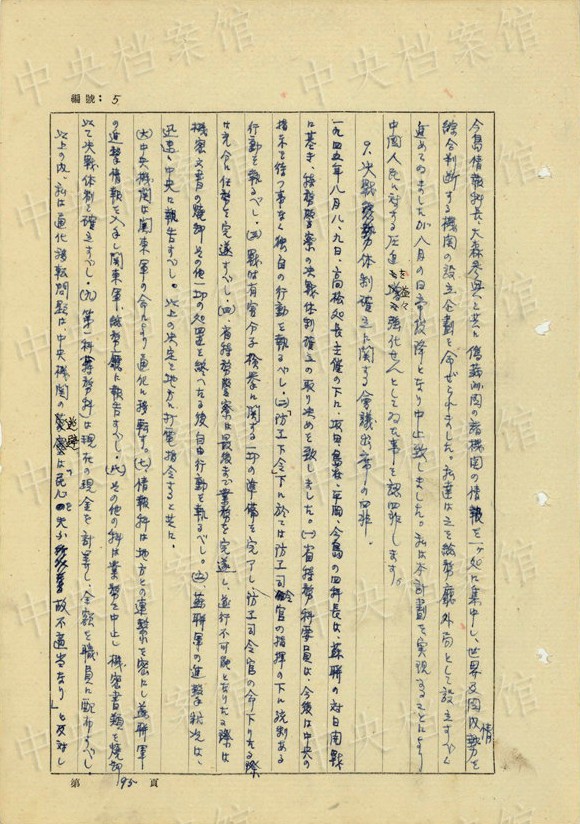 編號：5
今島情報科長、大森参與と共に偽蘇州内の諸機関の情報を一ヶ処に集中し、世界各国情勢を
綜合判断する機関の設立企劃を命ぜられました。私達は之を総務庁外局として設立すべく
進めてゐましたが八月の日帝投降となり中止致しました。私は本計劃を実現することにより
中国人民に対する圧迫を益々強化せんとしてゐた事を認罪します。
9. 決戦体制確立に関する会議出席の罪。
一九四五年八月八、九日、高松処長主催の下に、今島の四科長は、蘇聯の対日開戦
に基き、特務警察の決戦体制確立の取り決めを致しました。(一)省特務科警員は、今後は中央の
指示を待つ事なく独自の行動を執るべし。(二)「防卫下令」下に於ては防卫司令官の指揮の下に統制ある
行動を執るべし。(三)戦は有害分子検挙に関する一切の準備を完了し、防卫司令官の命下りたる際
は光分に任務を完遂すべし。(四)省特務警察は最後まで業務を完遂し、遂行不可能となりたる際は
機密文書の焼却その他一切の処置を終へたる後自由行動を執るべし。(五)蘇聯軍の進撃状況は、
迅速に中央に報告すべし。以上の決定を地方に打電指令すると共に、
(六)中央機関は関東軍の命令により通化に移転す。(七)情報科は地方との連繋を密にし蘇聯軍
の進撃情報を入手し関東軍、総務庁に報告すべし。(八)その他の科は業務を中止し機密書類を焼却
以て決戦体制を確立すべし。(九)第一科(特務科)は現在の現金を計算し、全額を職員に配布すべし。
以上の内、私は通化移転問題は、中央機関の逃避は「民心を失ふ故不適当なり」と反対し
第 95 頁
中央档案馆